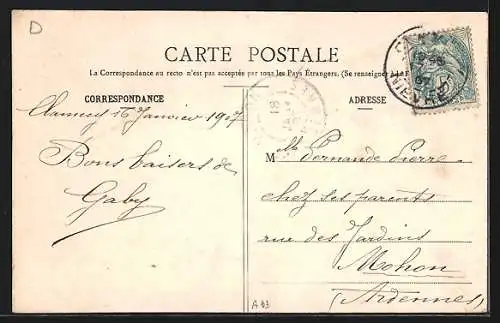 D
CARTE POSTALE
La Correspondance au recto n'est pas acceptée par tous les Pays Étrangers, (Se renseigner à la
CORRESPONDANCE
ADRESSE
16 Janvier 1907
Bons baisers de
Gaby
M lle Fernande Pierre
chez ses parents
rue des Jardins
Mohon
(Ardennes)
A 43